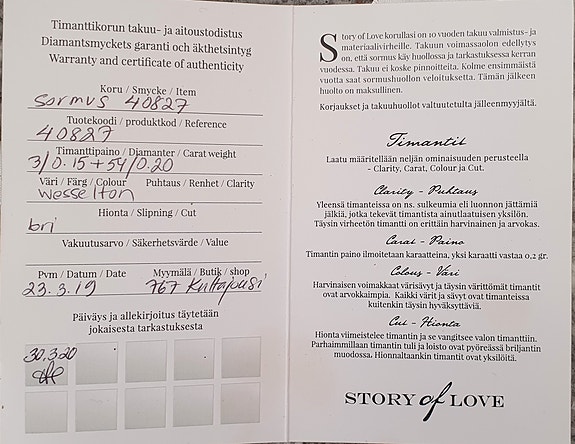 Timanttikorun takuu- ja aitoustodistus
Diamantsmyckets garanti och äkthetsintyg
Warranty and certificate of authenticity
Koru / Smycke / Item
sormus 40827
Tuotekoodi / produktkod / Reference
40827
Timanttipaino / Diamanter / Carat weight
3/0.15 + 54/0.20
Väri / Färg / Colour Puhtaus / Renhet / Clarity
Wesselton
Hionta / Slipning / Cut
bri
Vakuutusarvo / Säkerhetsvärde / Value
Pvm / Datum / Date Myymälä / Butik / shop
23.3.19 767 Kultajousi
Päiväys ja allekirjoitus täytetään
jokaisesta tarkastuksesta
30.3.20
Story of Love korullasi on 10 vuoden takuu valmistus- ja
materiaalivirheille. Takuun voimassaolon edellytys
on, että sormus käy huollossa ja tarkastuksessa kerran
vuodessa. Takuu ei koske pinnoitteita. Kolme ensimmäistä
vuotta saat sormushuollon veloituksetta. Tämän jälkeen
huolto on maksullinen.
Korjaukset ja takuuhuollot valtuutetulta jälleenmyyjältä.
Timantit
Laatu määritellään neljän ominaisuuden perusteella
- Clarity, Carat, Colour ja Cut.
Clarity - Puhtaus
Yleensä timanteissa on ns. sulkeumia eli luonnon jättämiä
jälkiä, jotka tekevät timantista ainutlaatuisen yksilön.
Täysin virheetön timantti on erittäin harvinainen ja arvokas.
Carat - Paino
Timantin paino ilmoitetaan karaatteina, yksi karaatti vastaa 0,2 gr.
Colour - Väri
Harvinaisen voimakkaat värisävyt ja täysin värittömät timantit
ovat arvokkaimpia. Kaikki värit ja sävyt ovat timanteissa
kuitenkin täysin hyväksyttäviä.
Cut - Hionta
Hionta viimeistelee timantin ja se vangitsee valon timanttiin.
Parhaimmillaan timantin tuli ja loisto ovat pyöreässä briljantin
muodossa. Hionnaltaankin timantit ovat yksilöitä.
STORY of LOVE